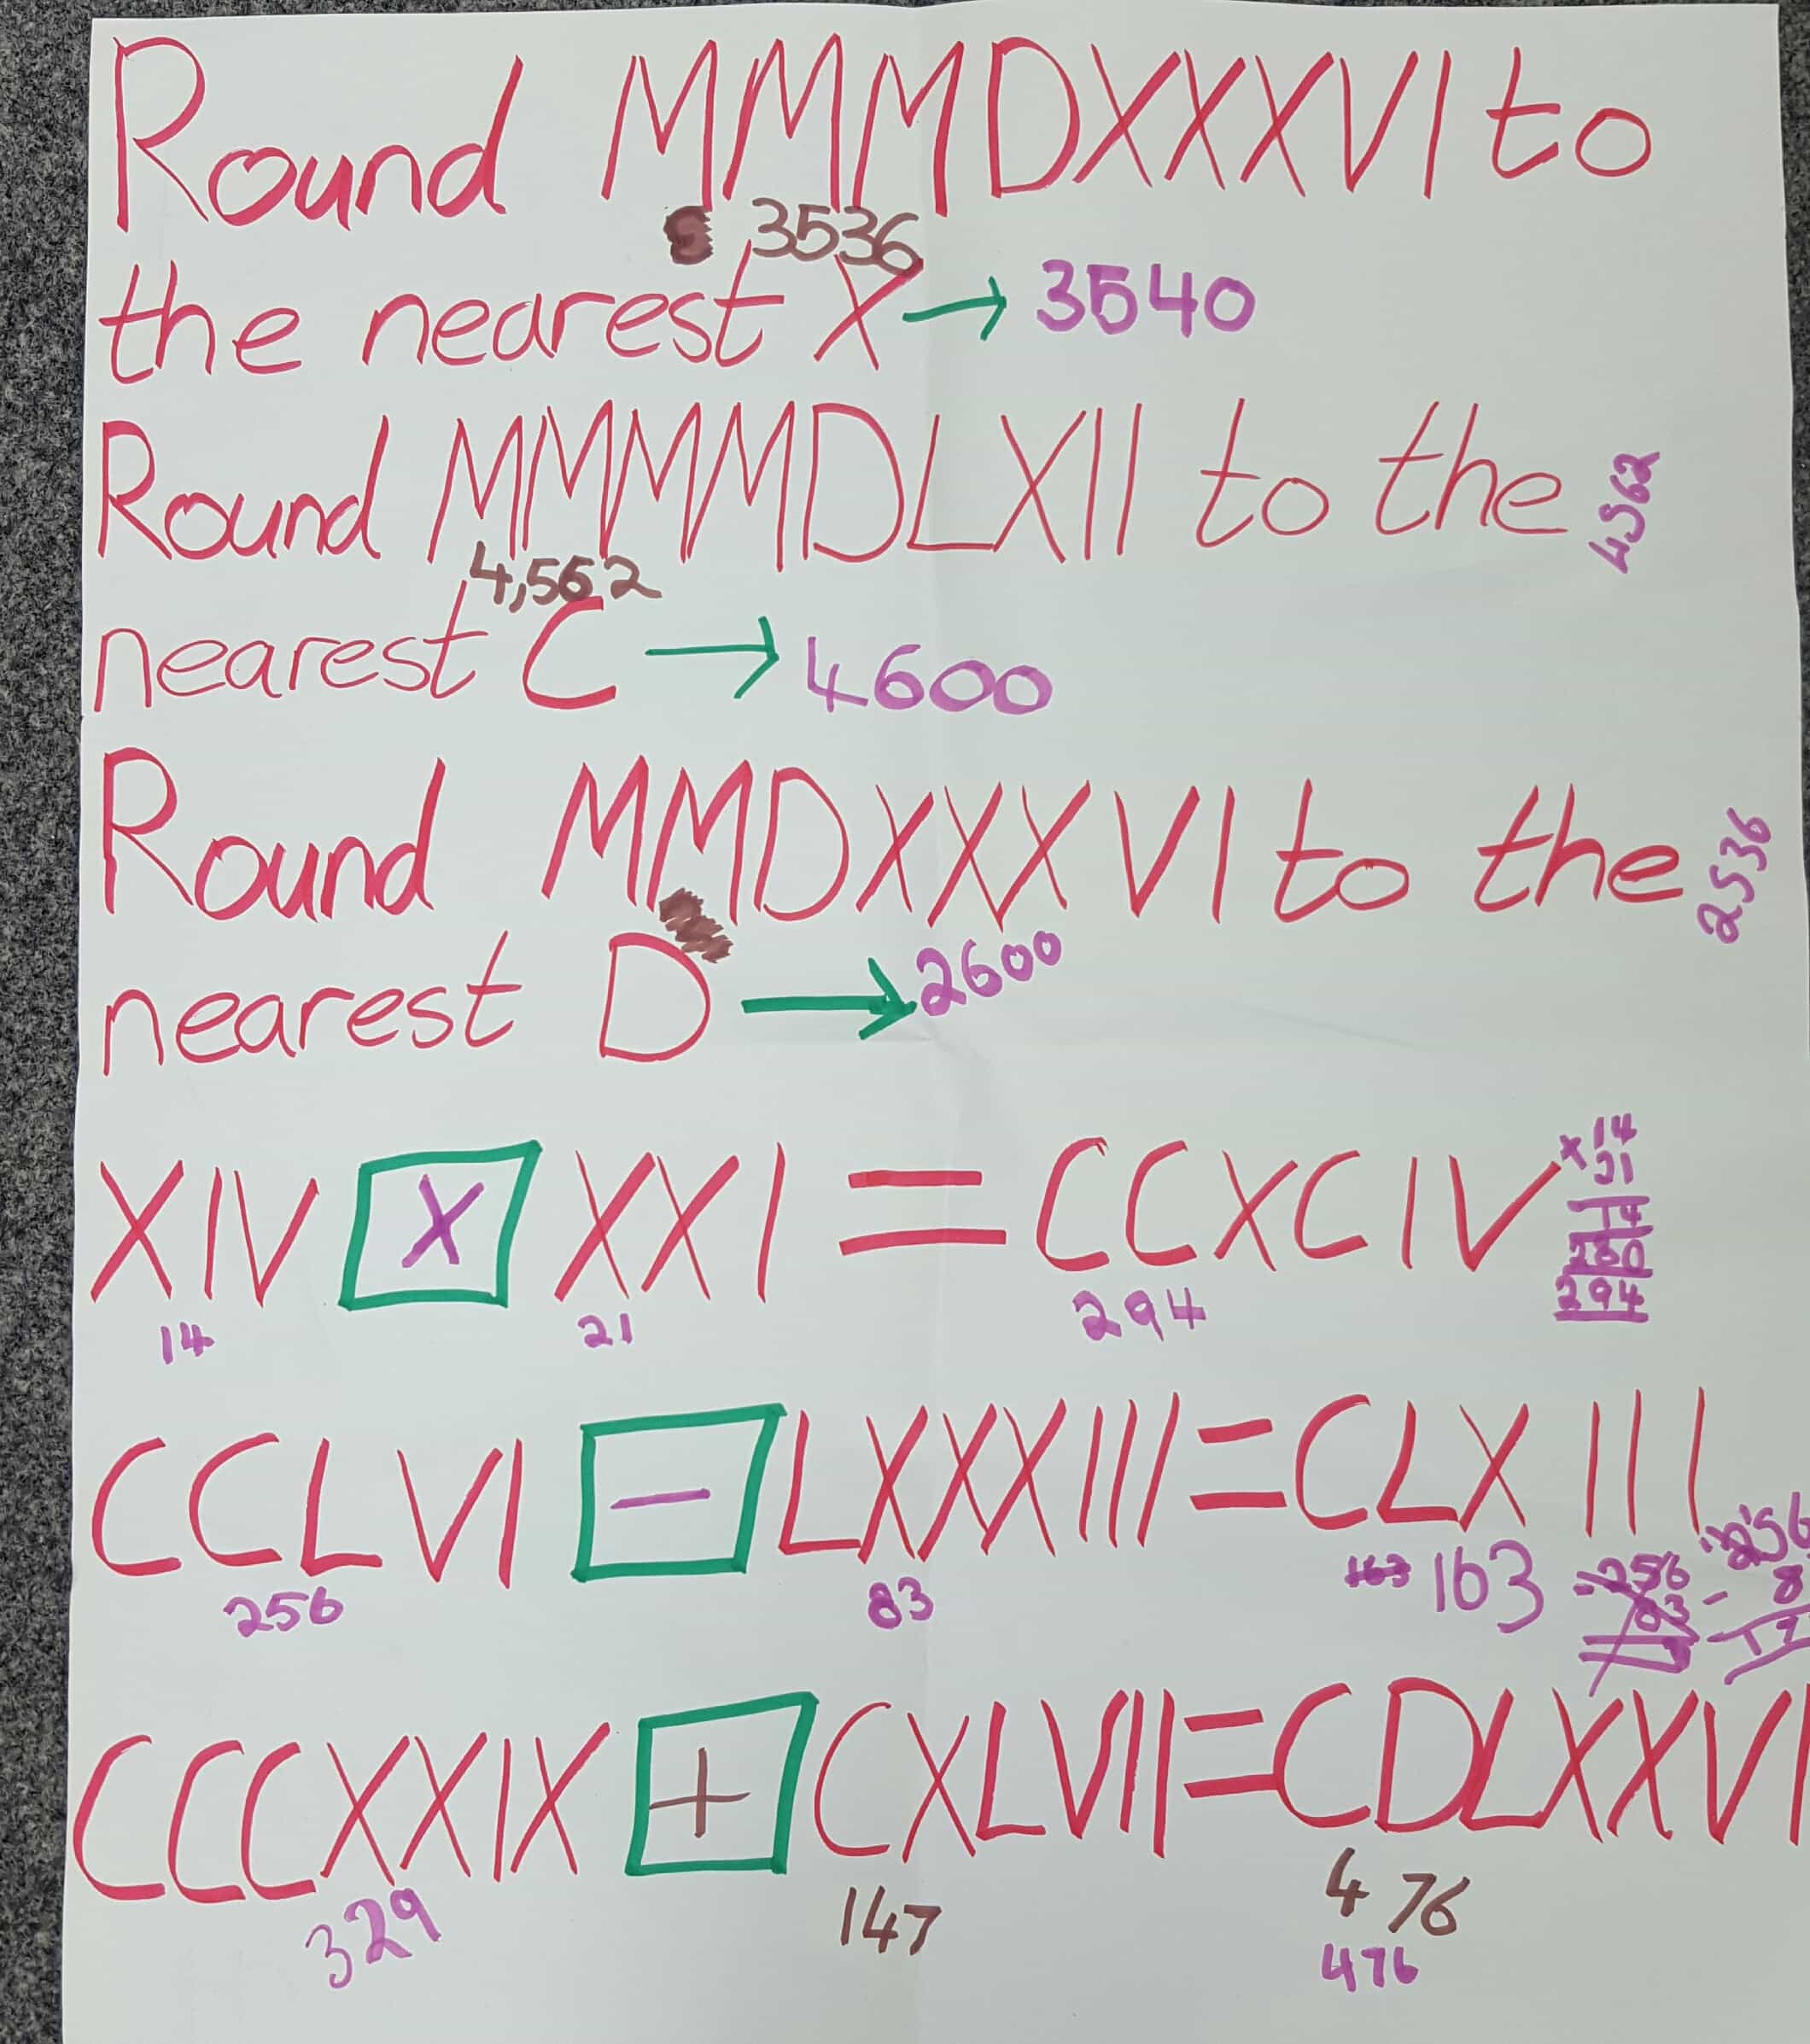 Round MMMDXXXVI to
3536
the nearest X → 3540
Round MMMMDLXII to the 4562
4,562
nearest C → 4600
Round MMDXXXVI to the 2536
nearest D → 2600
XIV X XXI = CCXCIV
14 21 294
x 14
21
14
280
294
CCLVI − LXXXIII = CLXIII
256 83 163 163
256
83
256
8
CCCXXIX + CXLVII = CDLXXVI
329 147 476
476